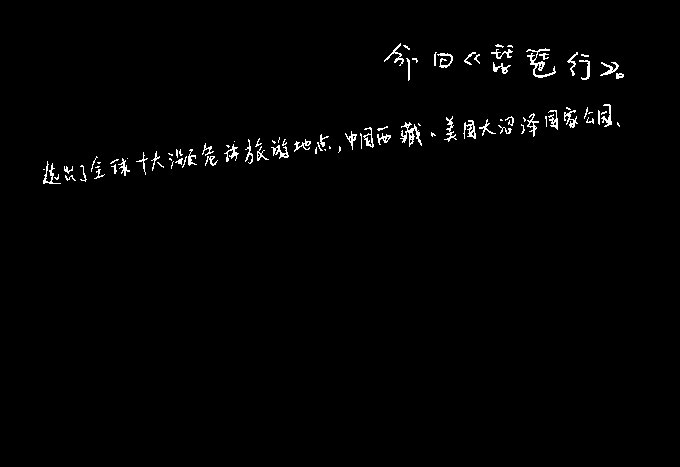 命曰《琵琶行》。
选出了全球十大濒危的旅游地点，中国西藏、美国大沼泽国家公园、